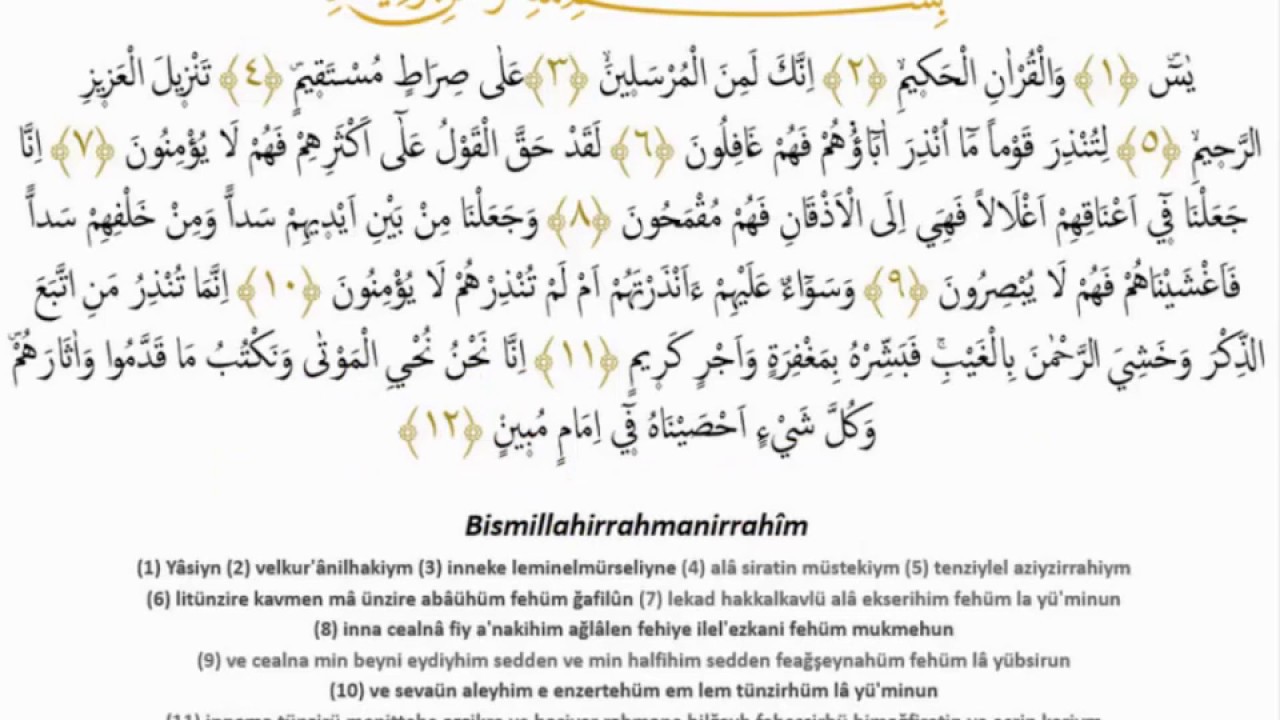 يٰسٓۜ ﴿١﴾ وَالْقُرْاٰنِ الْحَكٖيمِۙ ﴿٢﴾ اِنَّكَ لَمِنَ الْمُرْسَلٖينَۙ ﴿٣﴾ عَلٰى صِرَاطٍ مُسْتَقٖيمٍۜ ﴿٤﴾ تَنْزٖيلَ الْعَزٖيزِ
الرَّحٖيمِۙ ﴿٥﴾ لِتُنْذِرَ قَوْماً مَٓا اُنْذِرَ اٰبَٓاؤُ۬هُمْ فَهُمْ غَافِلُونَ ﴿٦﴾ لَقَدْ حَقَّ الْقَوْلُ عَلٰٓى اَكْثَرِهِمْ فَهُمْ لَا يُؤْمِنُونَ ﴿٧﴾ اِنَّا
جَعَلْنَا فٖٓي اَعْنَاقِهِمْ اَغْلَالاً فَهِيَ اِلَى الْاَذْقَانِ فَهُمْ مُقْمَحُونَ ﴿٨﴾ وَجَعَلْنَا مِنْ بَيْنِ اَيْدٖيهِمْ سَداًّ وَمِنْ خَلْفِهِمْ سَداًّ
فَاَغْشَيْنَاهُمْ فَهُمْ لَا يُبْصِرُونَ ﴿٩﴾ وَسَوَٓاءٌ عَلَيْهِمْ ءَاَنْذَرْتَهُمْ اَمْ لَمْ تُنْذِرْهُمْ لَا يُؤْمِنُونَ ﴿١٠﴾ اِنَّمَا تُنْذِرُ مَنِ اتَّبَعَ
الذِّكْرَ وَخَشِيَ الرَّحْمٰنَ بِالْغَيْبِۚ فَبَشِّرْهُ بِمَغْفِرَةٍ وَاَجْرٍ كَرٖيمٍ ﴿١١﴾ اِنَّا نَحْنُ نُحْيِ الْمَوْتٰى وَنَكْتُبُ مَا قَدَّمُوا وَاٰثَارَهُمْۜ
وَكُلَّ شَيْءٍ اَحْصَيْنَاهُ فٖٓي اِمَامٍ مُبٖينٍ ﴿١٢﴾
Bismillahirrahmanirrahîm
(1) Yâsiyn (2) velkur'ânilhakiym (3) inneke leminelmürseliyne (4) alâ siratin müstekiym (5) tenziylel aziyzirrahiym
(6) litünzire kavmen mâ ünzire abâühüm fehüm ğafilûn (7) lekad hakkalkavlü alâ ekserihim fehüm la yü'minun
(8) inna cealnâ fiy a'nakihim ağlâlen fehiye ilel'ezkani fehüm mukmehun
(9) ve cealna min beyni eydiyhim sedden ve min halfihim sedden feağşeynahüm fehüm lâ yübsirun
(10) ve sevaün aleyhim e enzertehüm em lem tünzirhüm lâ yü'minun